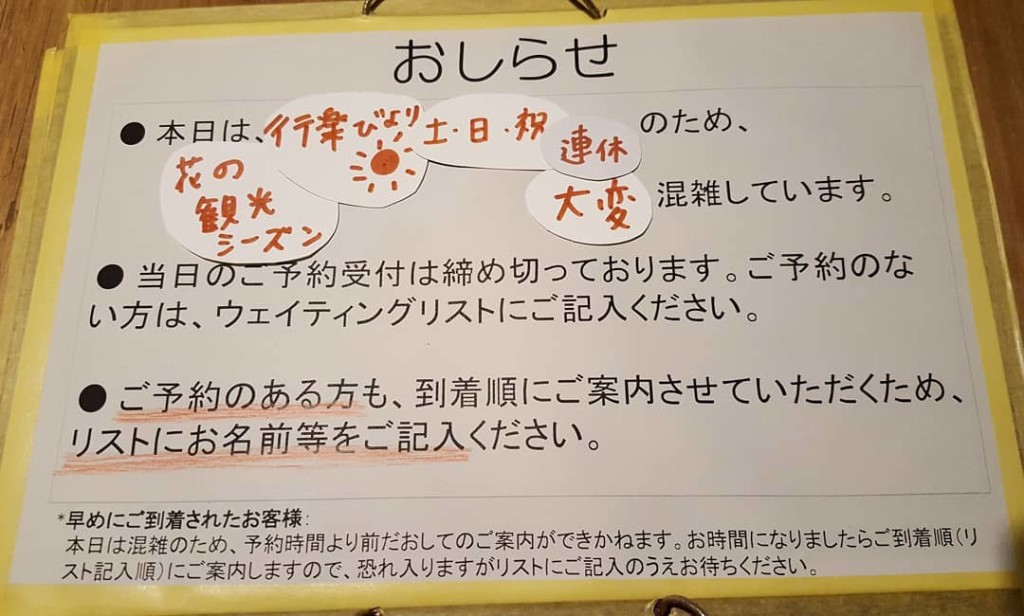 おしらせ
● 本日は、行楽びより 土・日・祝 連休 のため、
花の
観光
シーズン
大変 混雑しています。
● 当日のご予約受付は締め切っております。ご予約のな
い方は、ウェイティングリストにご記入ください。
● ご予約のある方も、到着順にご案内させていただくため、
リストにお名前等をご記入ください。
*早めにご到着されたお客様:
本日は混雑のため、予約時間より前だおしてのご案内ができかねます。お時間になりましたらご到着順(リ
スト記入順)にご案内しますので、恐れ入りますがリストにご記入のうえお待ちください。